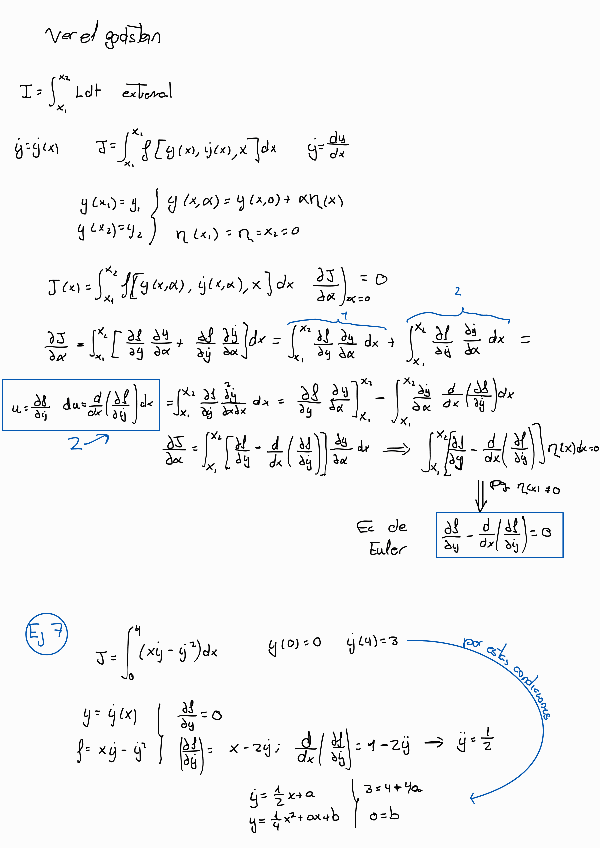 Ver el godstan
I = ∫_{x₁}^{x₂} L dt extremal
ẏ = ẏ(x) J = ∫_{x₁}^{x₂} f[y(x), ẏ(x), x] dx ẏ = dy/dx
y(x₁) = y₁ } y(x,α) = y(x,0) + αη(x)
y(x₂) = y₂ } η(x₁) = η = x₂ = 0
J(x) = ∫_{x₁}^{x₂} f[y(x,α), ẏ(x,α), x] dx ∂J/∂α)_{α=0} = 0
1 2
∂J/∂α = ∫_{x₁}^{x₂} [∂f/∂y ∂y/∂α + ∂f/∂ẏ ∂ẏ/∂α] dx = ∫_{x₁}^{x₂} ∂f/∂y ∂y/∂α dx + ∫_{x₁}^{x₂} ∂f/∂ẏ ∂ẏ/∂α dx =
u = ∂f/∂ẏ du = d/dx(∂f/∂ẏ) dx = ∫_{x₁}^{x₂} ∂f/∂ẏ ∂²y/∂α∂x dx = ∂f/∂y ∂y/∂α]_{x₁}^{x₂} − ∫_{x₁}^{x₂} ∂y/∂α d/dx(∂f/∂ẏ) dx
2 →
∂J/∂α = ∫_{x₁}^{x₂} [∂f/∂y − d/dx(∂f/∂ẏ)] ∂y/∂α dx ⟹ ∫_{x₁}^{x₂} [∂f/∂y − d/dx(∂f/∂ẏ)] η(x) dx = 0
⇓ η(x) ≠ 0
Ec de
Euler
∂f/∂y − d/dx(∂f/∂ẏ) = 0
Ej 7
J = ∫_0^4 (xẏ − ẏ²) dx y(0) = 0 y(4) = 3
por estas condiciones
y = y(x) ∂f/∂y = 0
f = xẏ − ẏ² (∂f/∂ẏ) = x − 2ẏ; d/dx(∂f/∂ẏ) = 1 − 2ÿ → ÿ = 1/2
ẏ = 1/2 x + a 3 = 4 + 4a
y = 1/4 x² + ax + b 0 = b